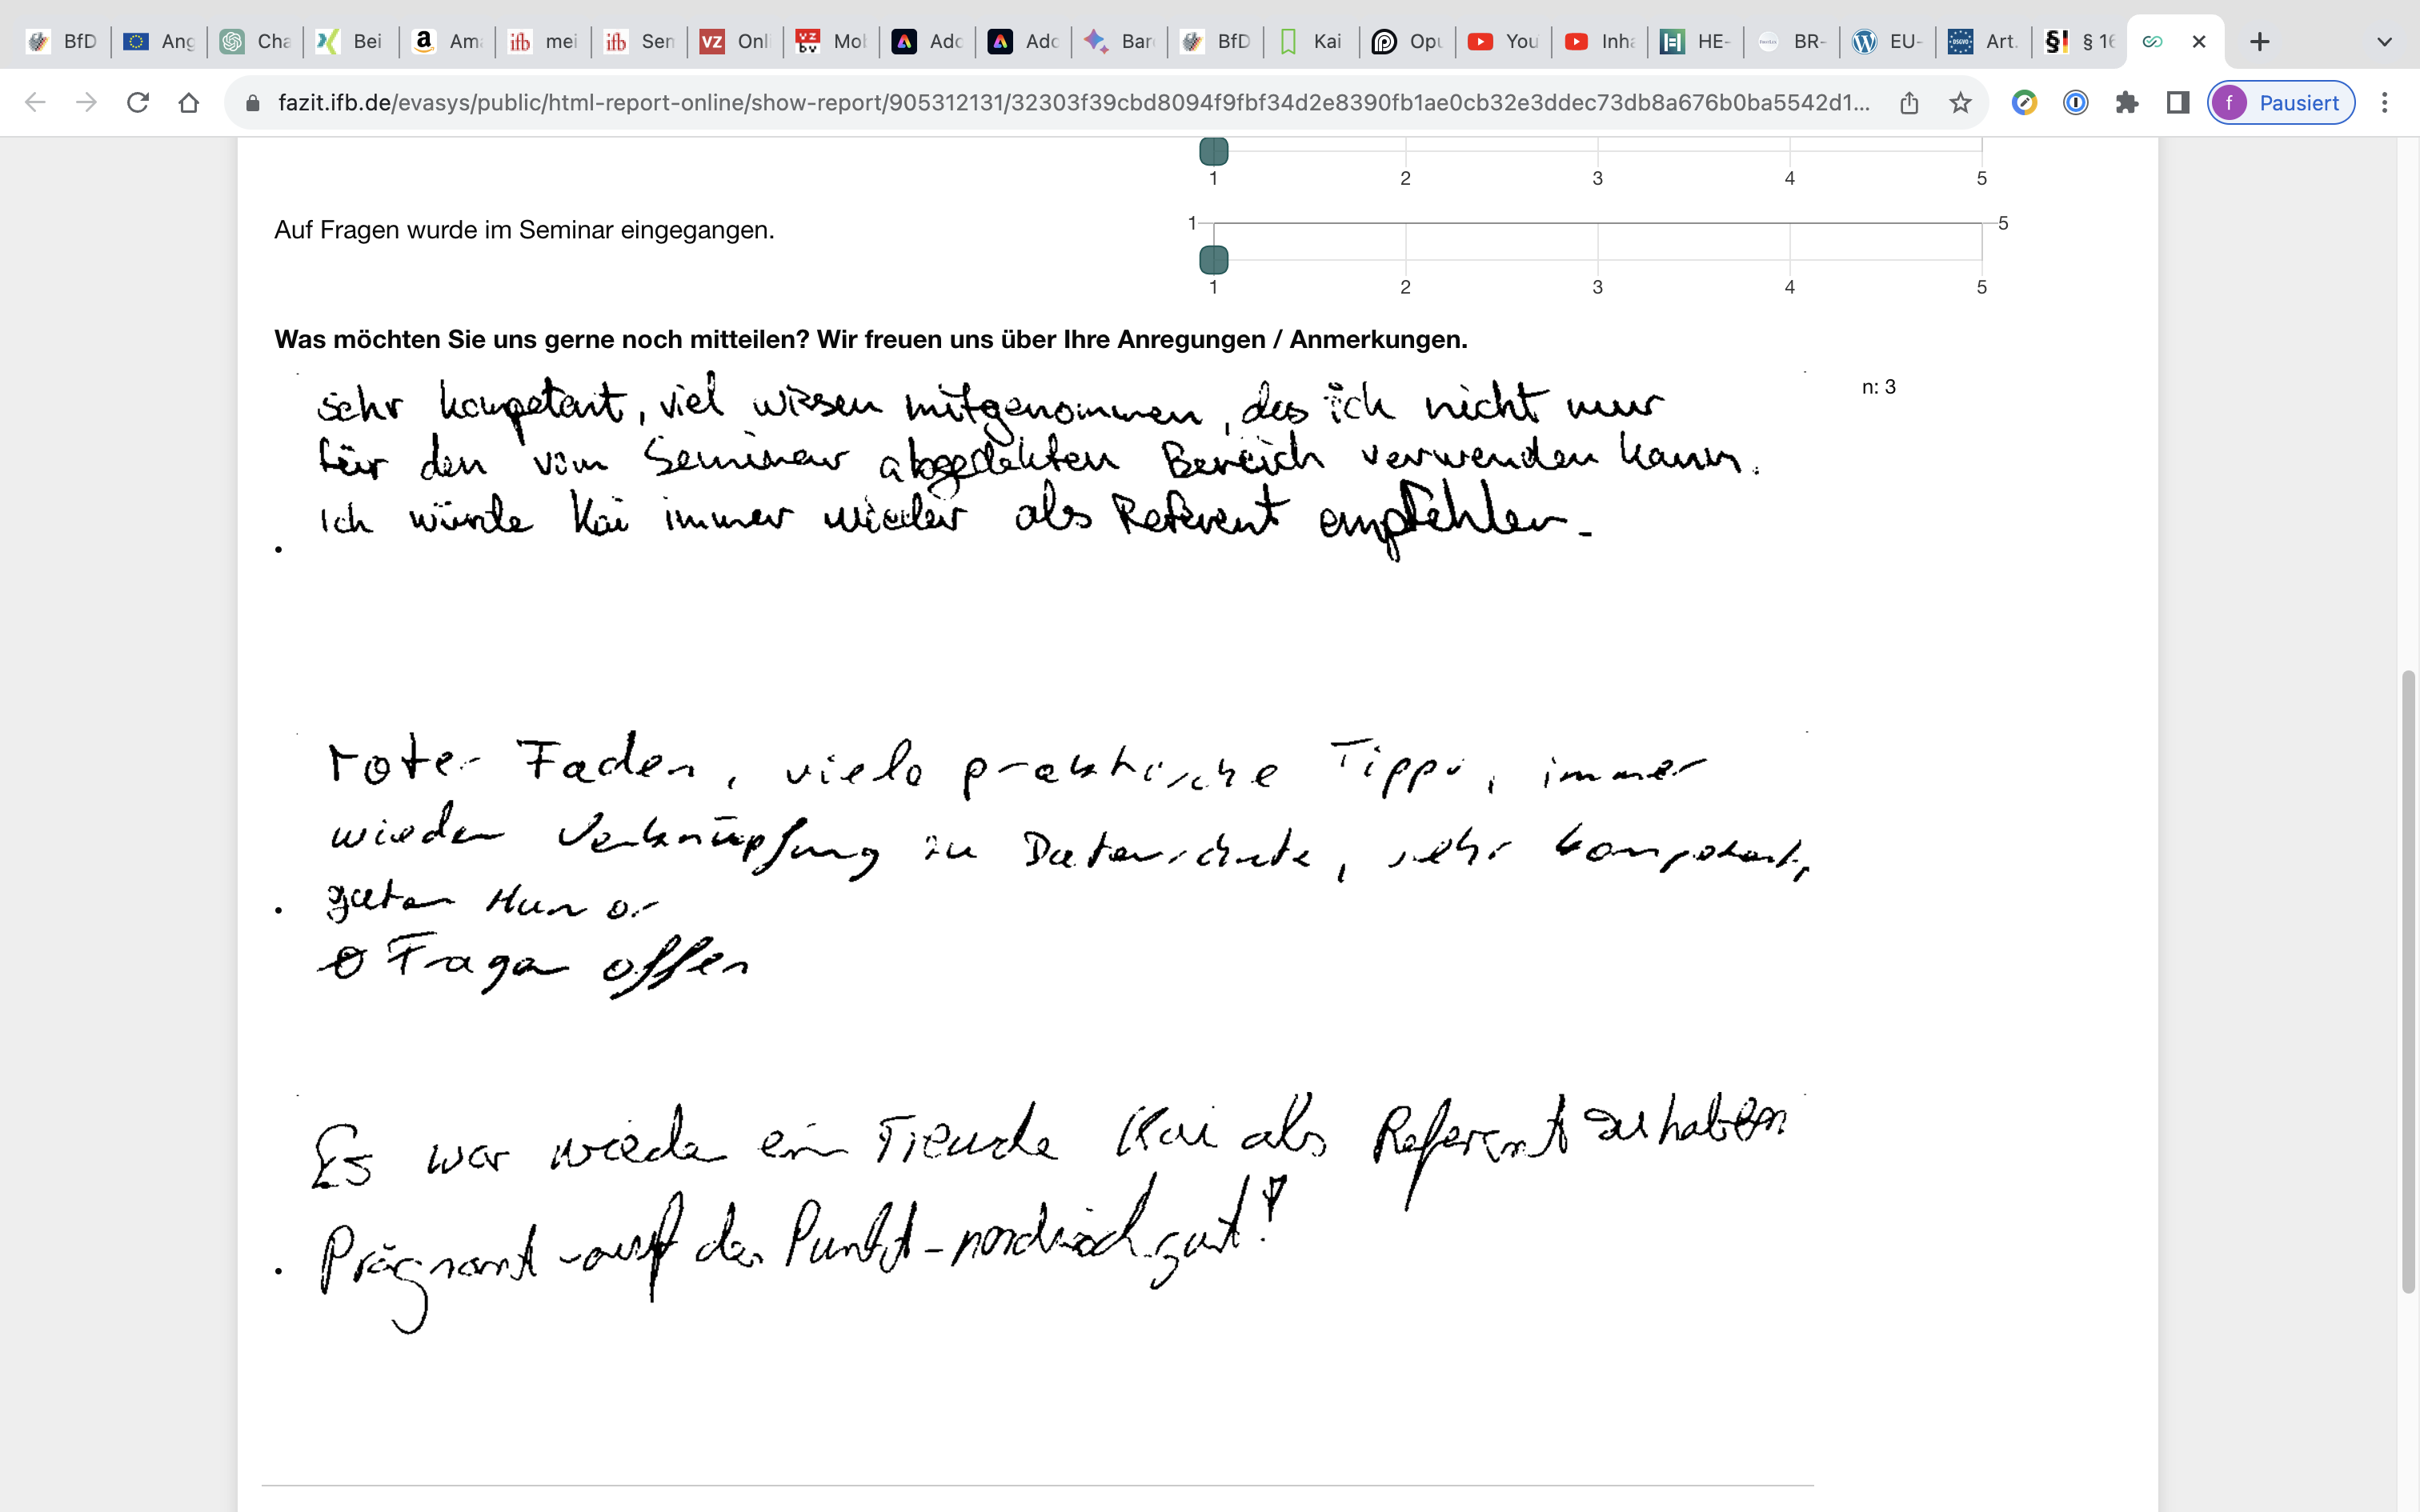 BfD Ang Cha Bei Am ifb mei ifb Sen VZ Onl Mol Adc Adc Bar BfD Kai Opu You Inha HE- BR- EU- Art. § 16
fazit.ifb.de/evasys/public/html-report-online/show-report/905312131/32303f39cbd8094f9fbf34d2e8390fb1ae0cb32e3ddec73db8a676b0ba5542d1... f Pausiert
1 2 3 4 5
Auf Fragen wurde im Seminar eingegangen.
1 5
1 2 3 4 5
Was möchten Sie uns gerne noch mitteilen? Wir freuen uns über Ihre Anregungen / Anmerkungen.
n: 3
sehr kompetent, viel wissen mitgenommen, das ich nicht nur
für den vom Seminar abgedekten Bereich verwenden kann.
Ich würde Kai immer wieder als Referent empfehlen.
roter Faden, viele praktische Tipps, immer
wieder Verknüpfung zu Datenschutz, sehr kompetent,
guter Humor
Ø Fragen offen
Es war wieder ein Freude Kai als Referent zu haben
Prägnant - auf den Punkt - nordisch gut!